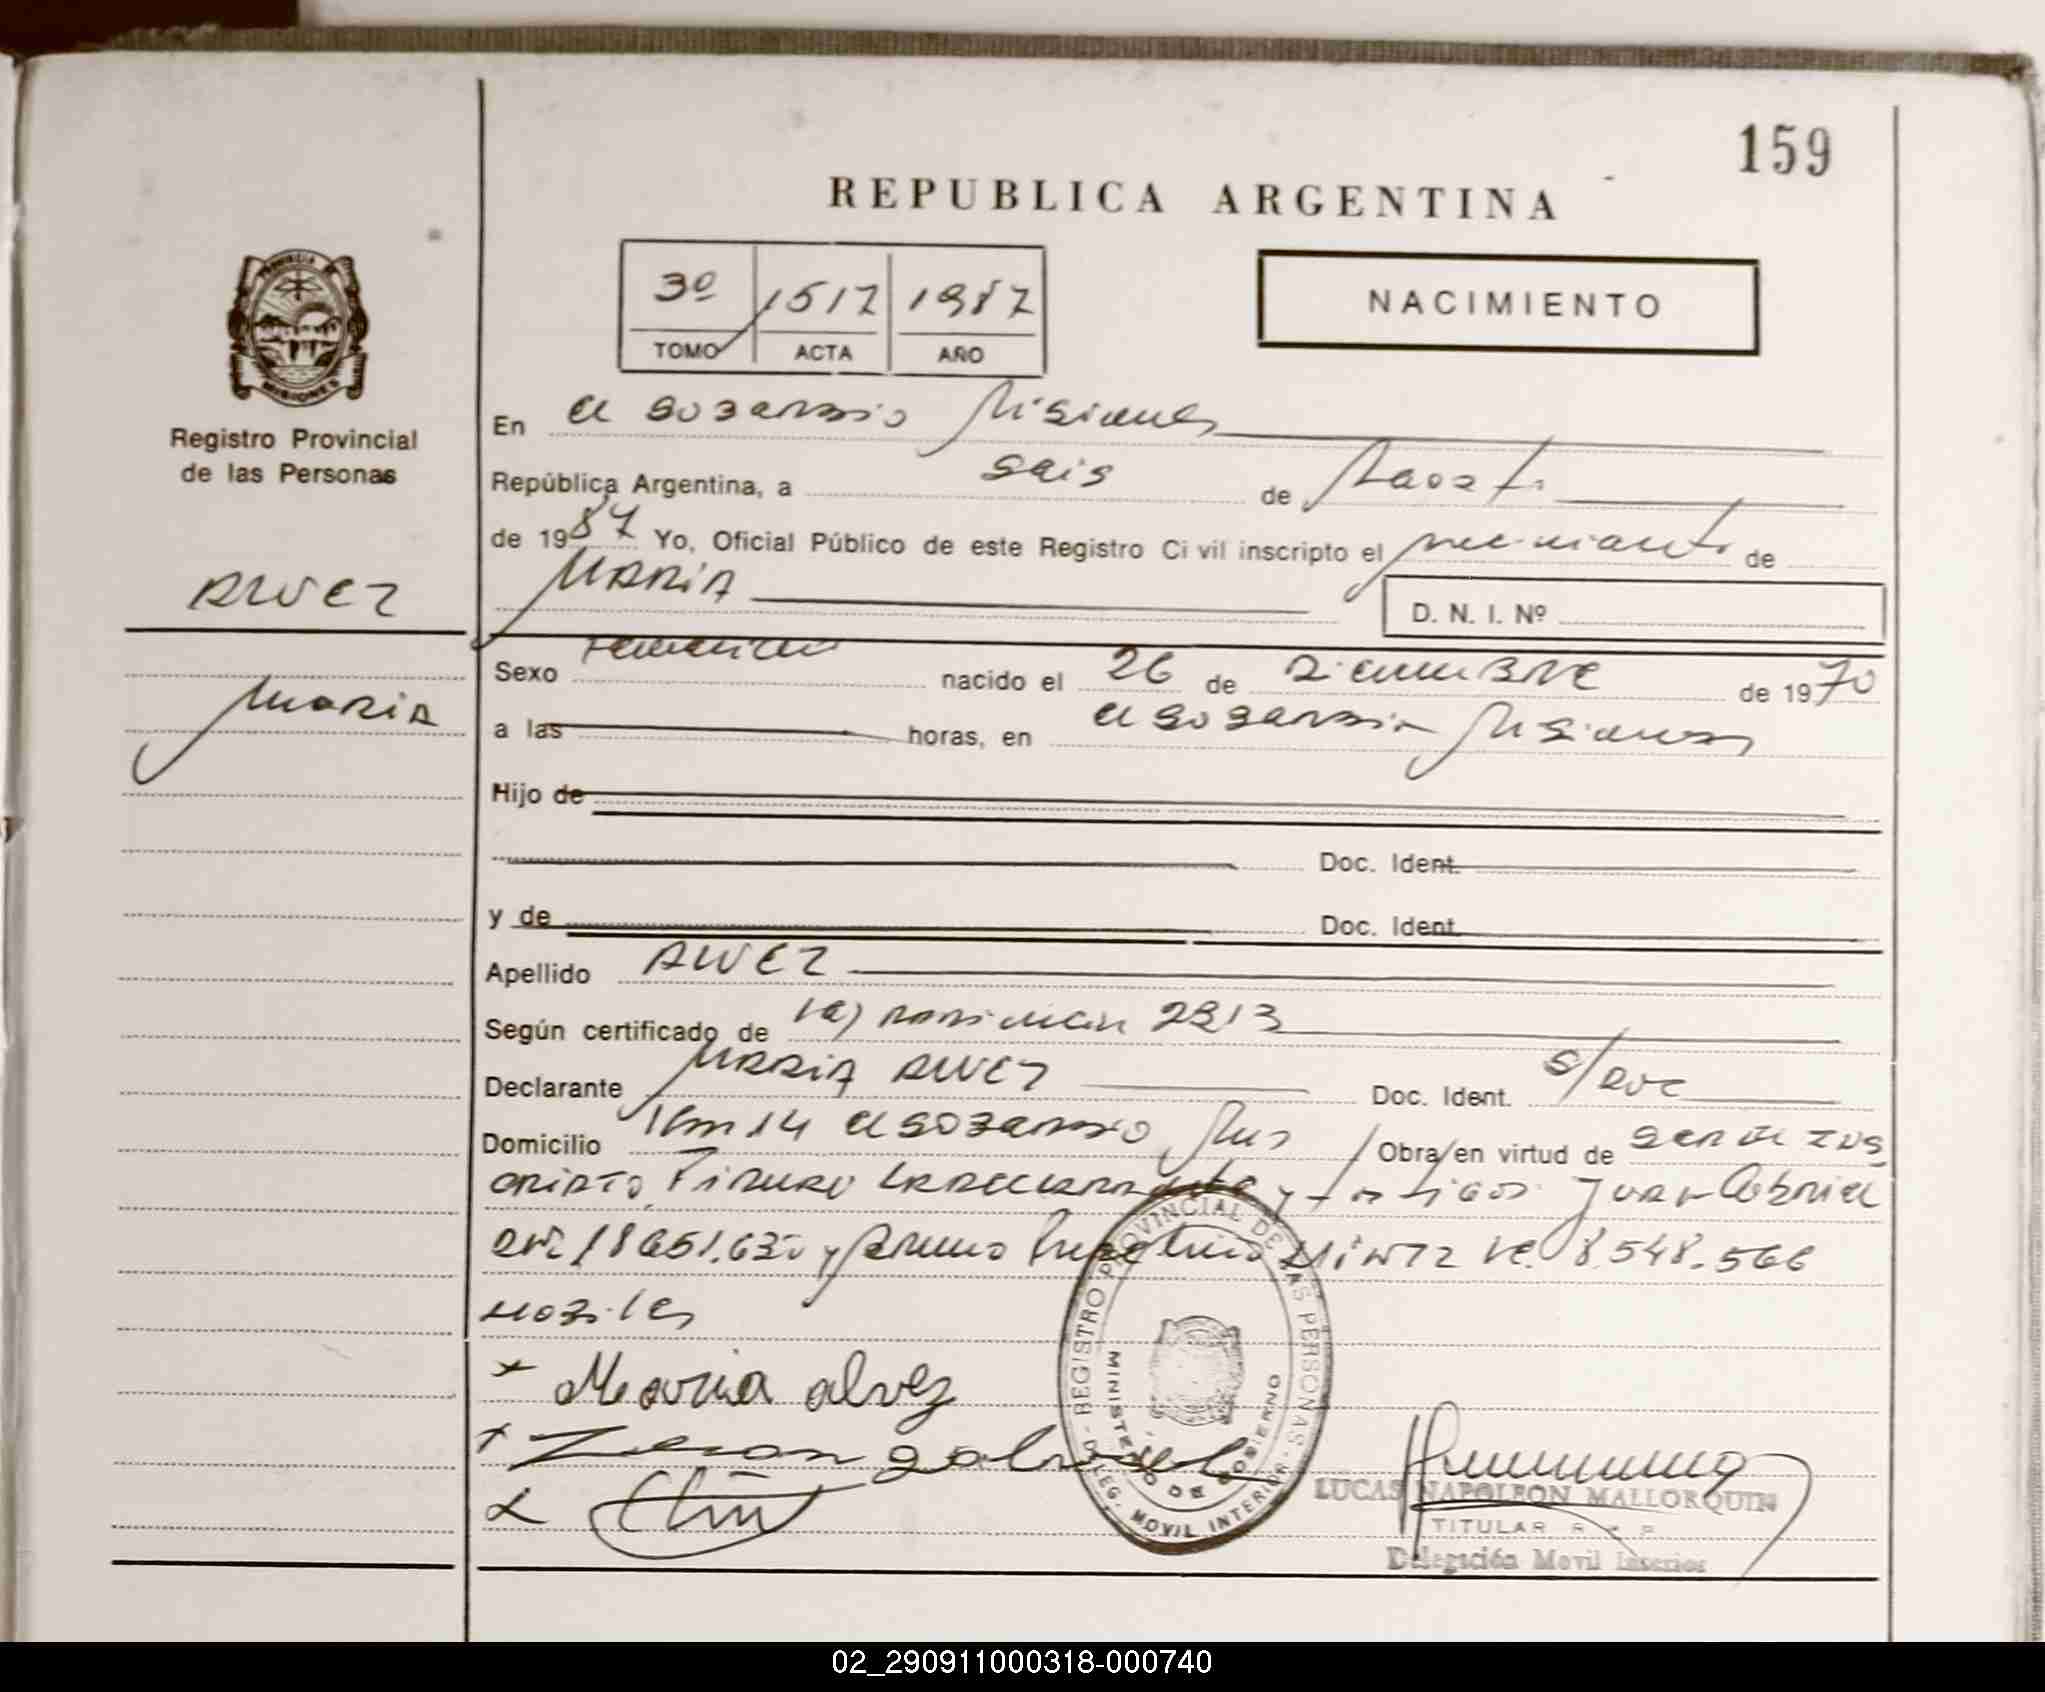 159
REPUBLICA ARGENTINA
3º 1517 1987
TOMO ACTA AÑO
NACIMIENTO
PROVINCIA DE MISIONES
Registro Provincial
de las Personas
ALVEZ
MARIA
En el soberbio Misiones
República Argentina, a seis de Agosto
de 1987 Yo, Oficial Público de este Registro Civil inscripto el nacimiento de
MARIA
D. N. I. Nº
Sexo Femenino nacido el 26 de Diciembre de 1970
a las horas, en el soberbio Misiones
Hijo de
Doc. Ident.
y de Doc. Ident.
Apellido ALVEZ
Según certificado de Ley 2213
Declarante MARIA ALVEZ Doc. Ident. s/doc
Domicilio Km 14 el soberbio Mnes / Obra/en virtud de
Firman la declarante y testigos Juan Gabriel
DNI 18651.630 y 8.548.566
x Maria alvez
x gabriel
REGISTRO PROVINCIAL DE LAS PERSONAS - DELEG. MOVIL INTERIOR -
MINISTERIO DE GOBIERNO
LUCAS NAPOLEON MALLORQUIN
TITULAR R P
Delegación Movil Interior
02_290911000318-000740